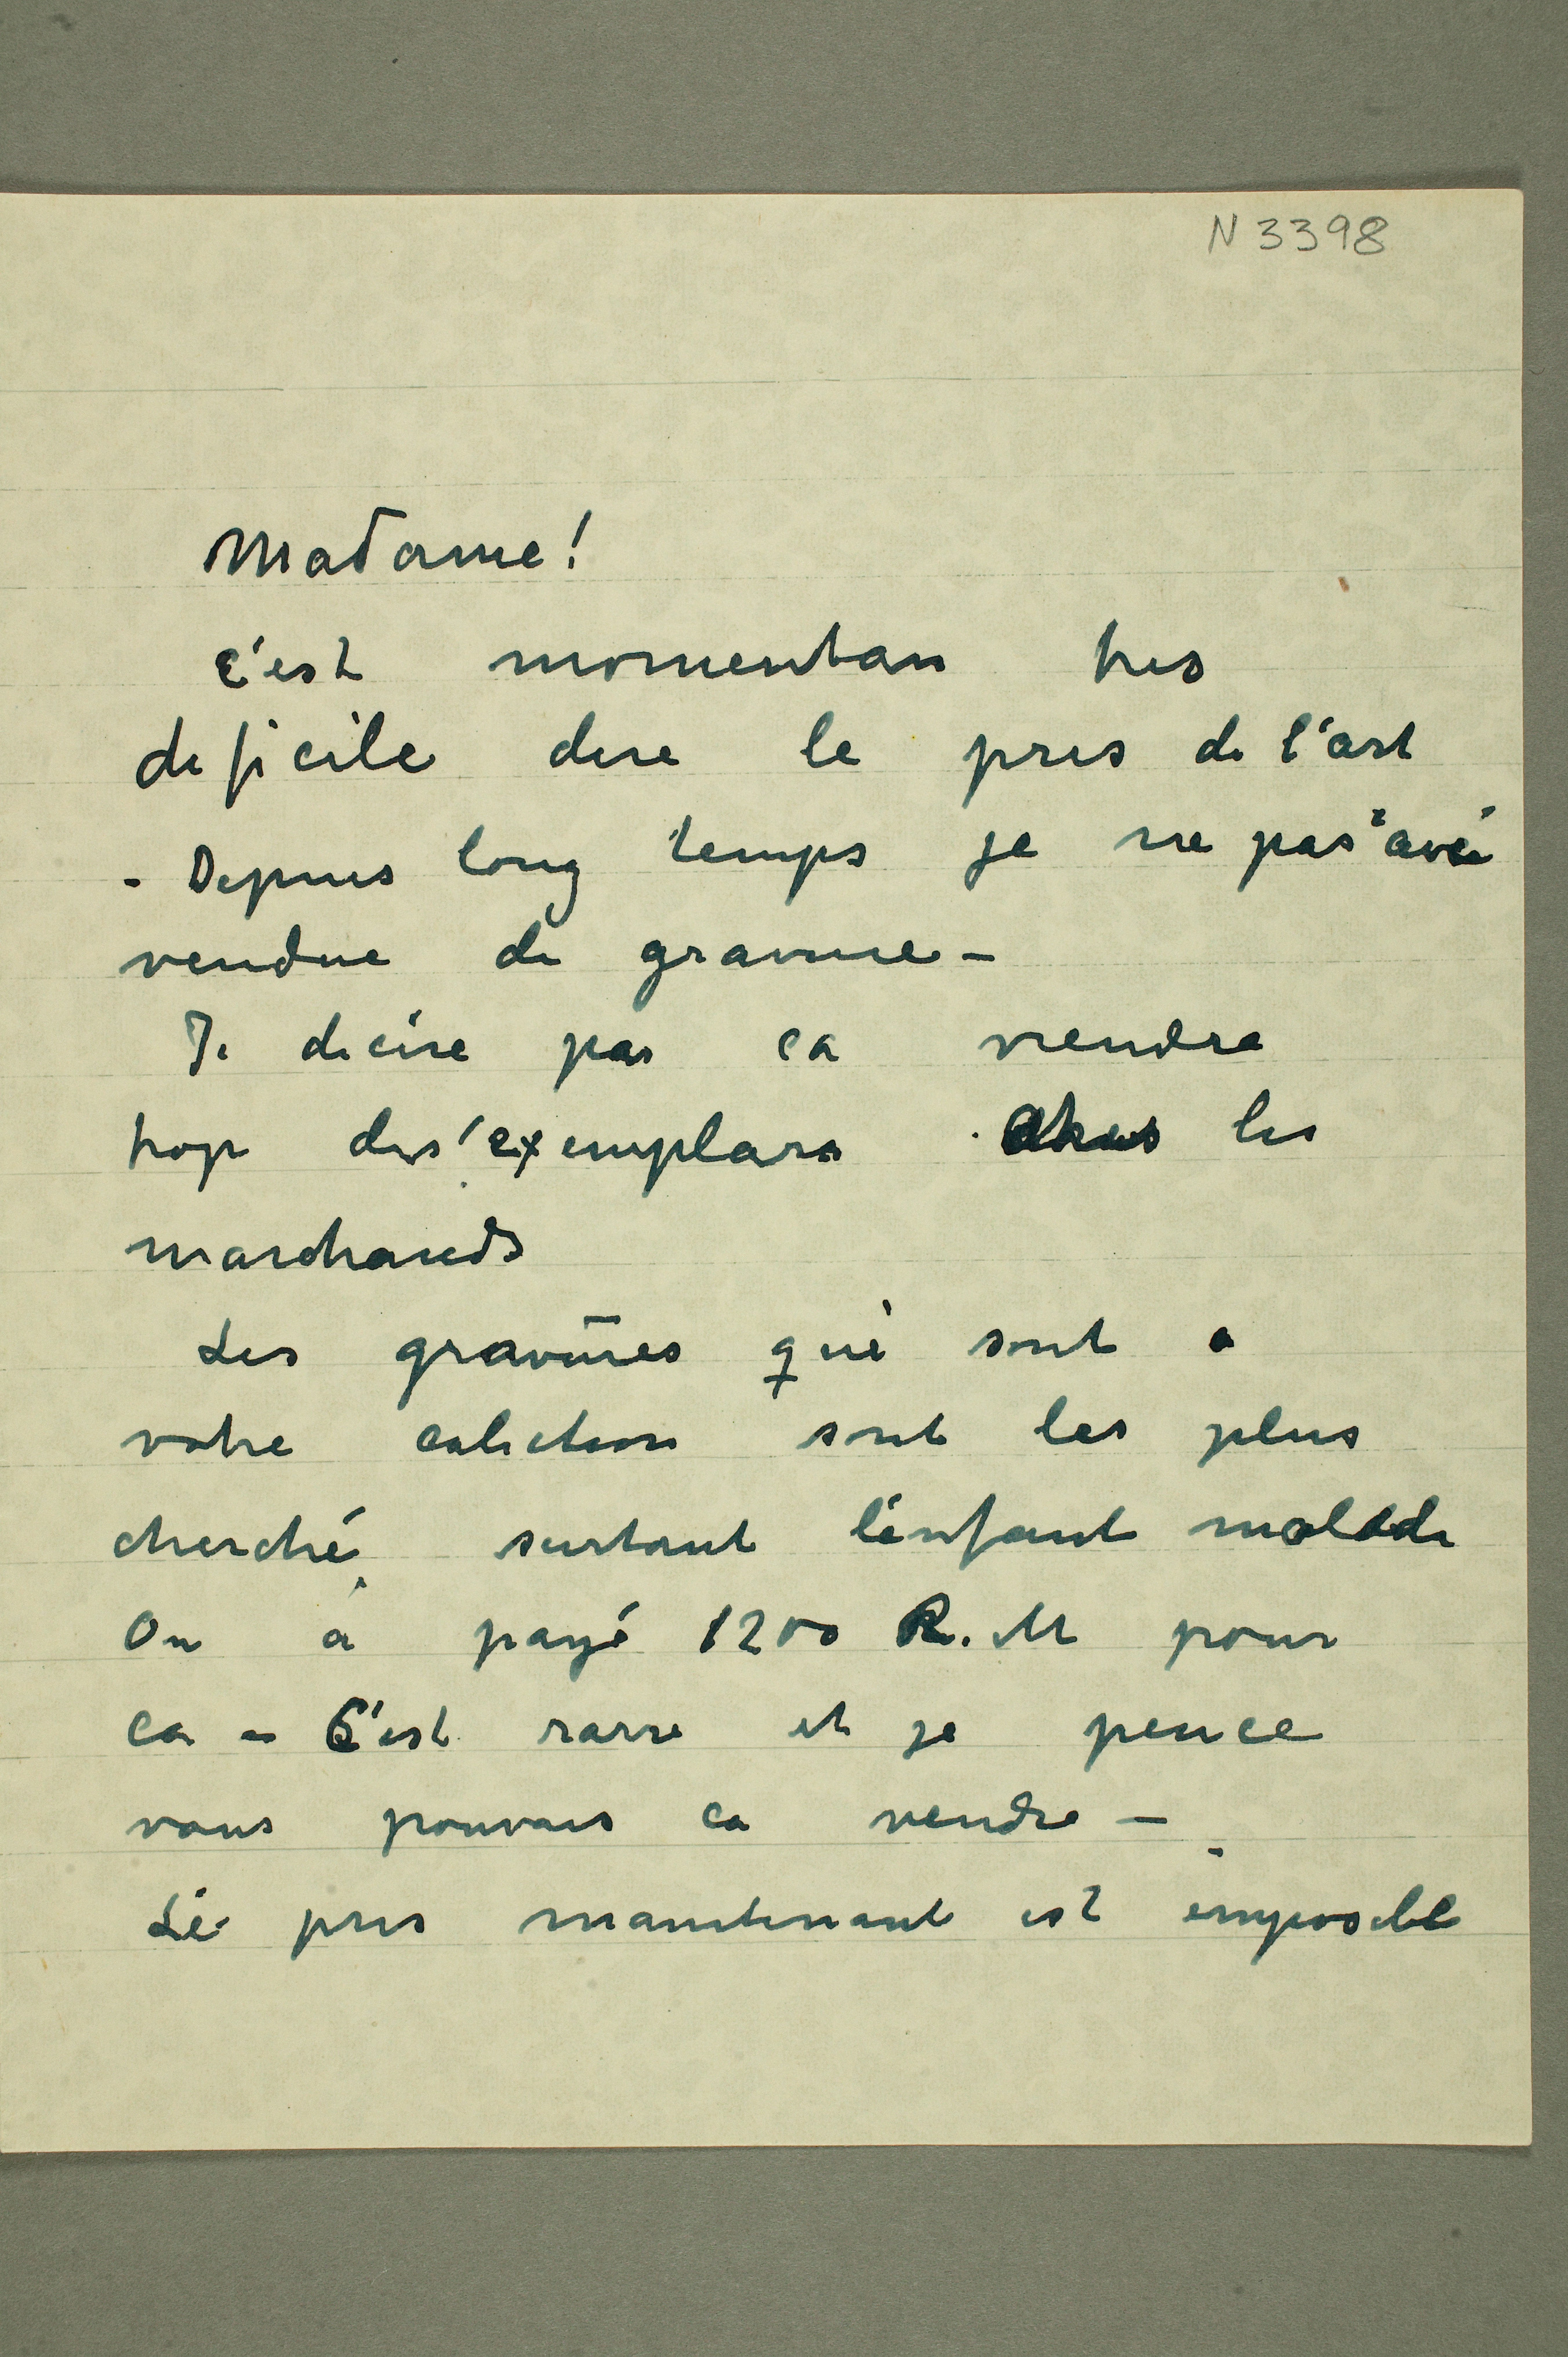 N 3398
Madame!
C'est momentan tres
deficile dire le pris de l'art
- Depuis long temps je ne pas avé
vendue de gravure -
Je decire pas ca vendre
trop des'exemplars les
marchands
Les gravures qui sont a
votre colection sont les plus
cherché surtout l'énfant malade
On a payé 1200 R.M pour
ca - C'est rarre et je pence
vous pouvais ca vendre -
Le pris maintenant est imposibl